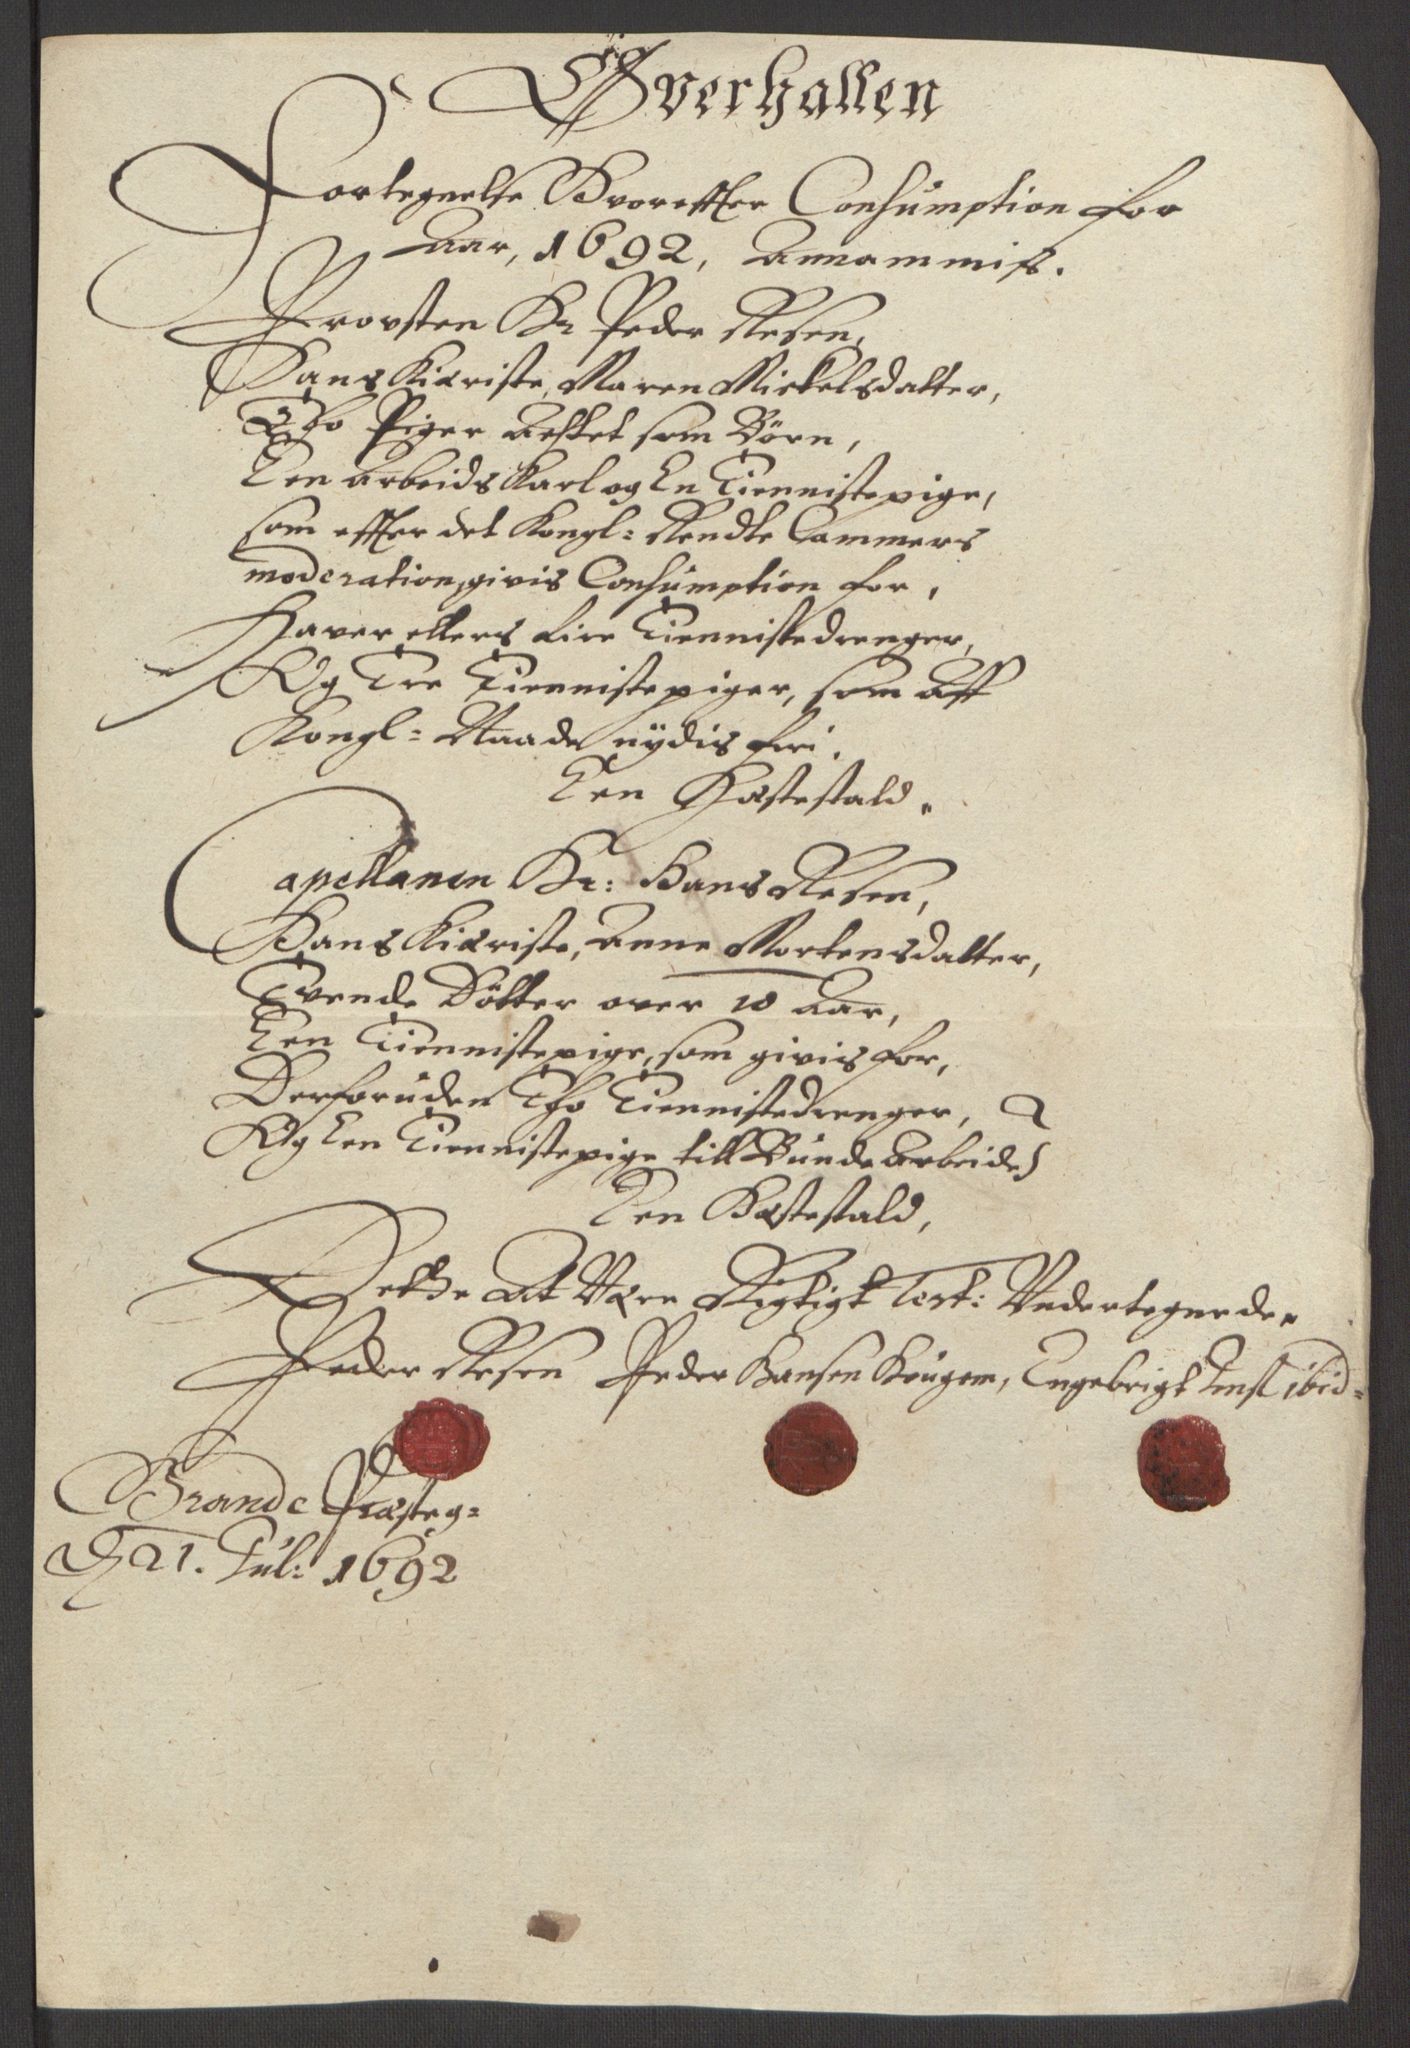 Överhallen
Fortegnelse Hvorefter Consumption for
Aar, 1692, Annammis.
Provsten Hr Peder Resen,
Hans Kiæriste, Maren Nickelsdatter,
Tho Piger actet som Børn,
Een arbeids Karl og En Tiennistepige,
som efter det Kongl: Rendte Cammers
moderation, givis Consumption for,
Haver ellers fire Tiennistedrenger,
Og Tre Tiennistepiger, som aff
Kongl: Naade nÿdis fri.
Een Hæstestald.
Capellanen Hr: Hans Resen,
Hans Kiæriste, Anne Mortensdatter,
Tvende Döttr over 10 Aar,
Een Tiennistepige, som givis for,
Derforuden Tho Tiennistedrenger,
Og Een Tiennistepige till Bunde Arbeide
Een Hæstestald,
Dette At Være Rigtigt Test: Undertegnede.
Peder Resen Peder Hansen Haugem, Engebrigt Jensß ibid=
Brande Præsteg=
d 21. Jul: 1692